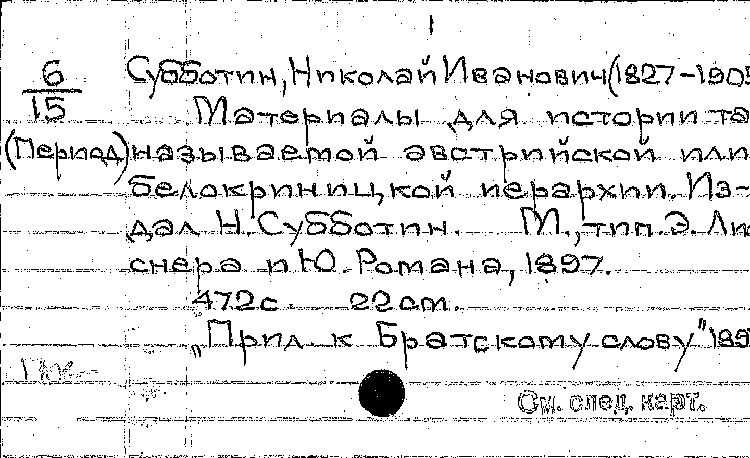 1
6
15
(Период)
Субботин, Николай Иванович (1827-1905
Материалы для истории та
называемой австрийской или
белокриницкой иерархии. Из-
дал Н. Субботин. М., тип. Э. Лис
снера и Ю. Романа, 1897.
472с 22 cm.
„Прил к Братскому слову" 189
См. след. карт.